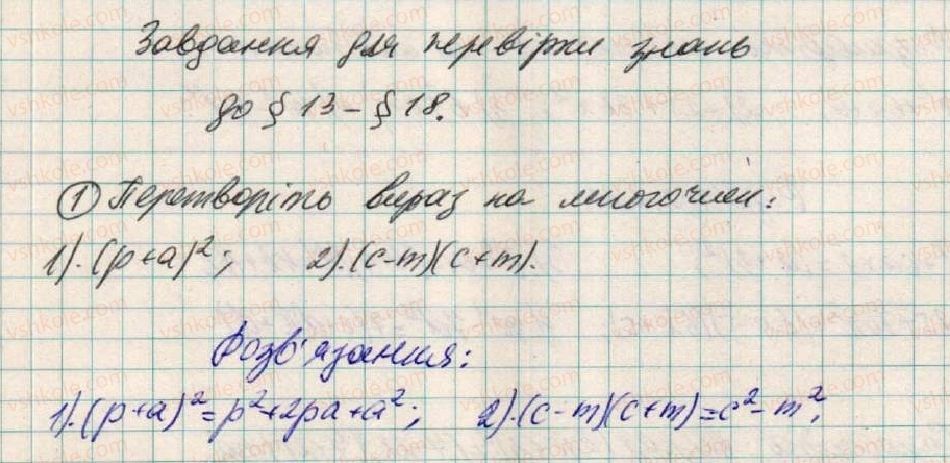 Завдання для перевірки знань
до § 13 – § 18.
① Перетворіть вираз на многочлен:
1). (p+a)²; 2). (c-m)(c+m).
Розв'язання:
1). (p+a)²=p²+2pa+a²; 2). (c-m)(c+m)=c²-m²;